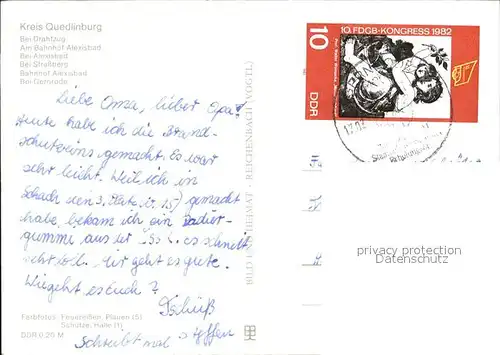 Kreis Quedlinburg
Bei Drahtzug
Am Bahnhof Alexisbad
Bei Alexisbad
Bei Straßberg
Bahnhof Alexisbad
Bei Gernrode
Liebe Oma, lieber Opa!
Heute habe ich die
gemacht. Es war
sehr leicht. Weil ich in
Schach den 3. Platz gemacht
habe, bekam ich ein Radier-
gummi aus der es schmeckt
sehr toll. Mir geht es gute.
Wie geht es Euch?
Tschüß
Steffen
Schreibt mal
Farbfotos: Feuereißen, Plauen (5)
Schütze, Halle (1)
DDR 0,20 M
BILD UND HEIMAT · REICHENBACH (VOGTL)
10. FDGB-KONGRESS 1982
10
DDR
privacy protection
Datenschutz